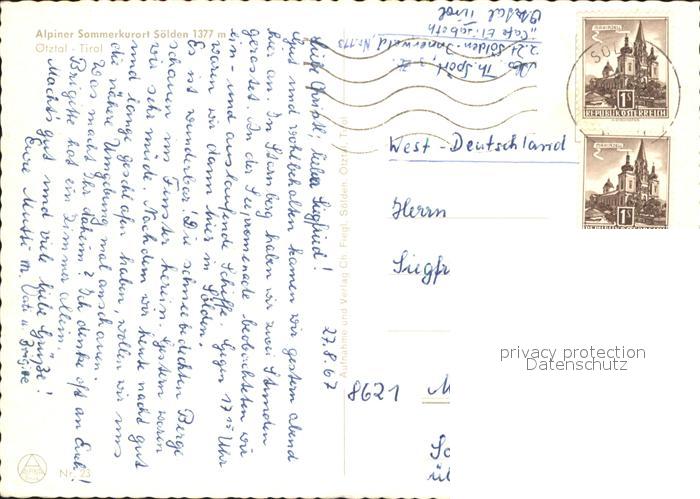 Alpiner Sommerkurort Sölden 1377 m
Ötztal - Tirol
27.8.67
Liebe Christl, lieber Siegfried!
Gut und wohlbehalten kamen wir gestern abend
hier an. In Starnberg haben wir zwei Stunden
gerastet. An der Seepromenade beobachteten wir
ein- und auslaufende Schiffe. Gegen 17 15 Uhr
waren wir dann hier in Sölden.
Es ist wunderbar! Die schneebedeckten Berge
schauen ins Fenster herein. Gestern waren
wir sehr müde. Nachdem wir heute nacht gut
und lange geschlafen haben, wollen wir uns
die nähere Umgebung mal anschauen.
Was macht Ihr daheim? Ich denke oft an Euch!
Brigitte hat ein Zimmer allein.
Machts gut und viele liebe Grüße!
Eure Mutti m. Vati u. Brigitte
Nr. 23
Aufnahme und Verlag Ch. Fiegl, Sölden, Ötztal, Tirol
Abs. Th. Spörl,
Sölden-Innerwald, Nr. 173
"Café Elisabeth"
Ötztal Tirol
SÖL
MARIAZELL
1S
REPUBLIK ÖSTERREICH
MARIAZELL
1S
REPUBLIK ÖSTERREICH
West-Deutschland
Herrn
Siegfr
8621 M
privacy protection
Datenschutz